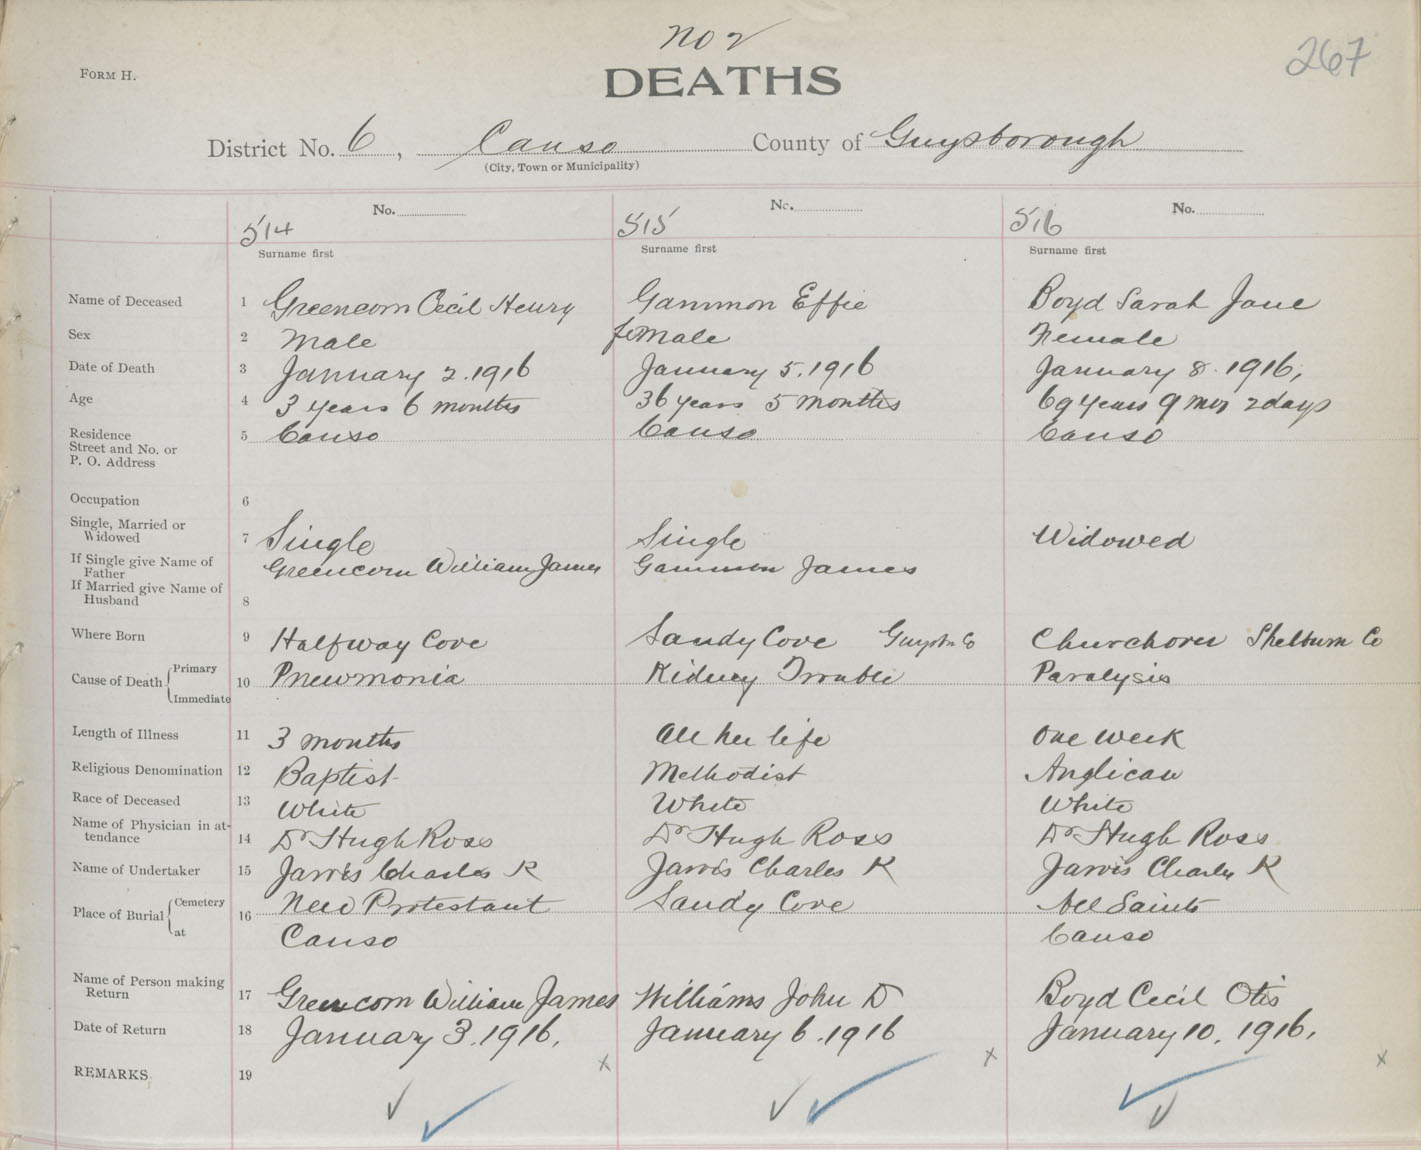 No 2
267
FORM H.
DEATHS
District No. 6, Canso County of Guysborough
(City, Town or Municipality)
No. No. No.
514 515 516
Surname first Surname first Surname first
Name of Deceased 1 Greencorn Cecil Henry Gammon Effie Boyd Sarah Jane
Sex 2 Male female Female
Date of Death 3 January 2. 1916 January 5. 1916 January 8. 1916,
Age 4 3 years 6 months 36 years 5 months 69 years 9 mos 2 days
Residence
Street and No. or
P. O. Address
5 Canso Canso Canso
Occupation 6
Single, Married or
Widowed
7 Single Single Widowed
If Single give Name of
Father
Greencorn William James Gammon James
If Married give Name of
Husband
8
Where Born 9 Halfway Cove Sandy Cove Guysb. Co Churchover Shelburn Co
Cause of Death Primary
Immediate
10 Pneumonia Kidney Trouble Paralysis
Length of Illness 11 3 months All her life One week
Religious Denomination 12 Baptist Methodist Anglican
Race of Deceased 13 White White White
Name of Physician in at-
tendance
14 Dr Hugh Ross Dr Hugh Ross Dr Hugh Ross
Name of Undertaker 15 Jarvis Charles K Jarvis Charles K Jarvis Charles K
Place of Burial Cemetery
at
16 New Protestant Sandy Cove All Saints
Canso Canso
Name of Person making
Return
17 Greencorn William James Williams John D Boyd Cecil Otis
Date of Return 18 January 3. 1916. January 6. 1916 January 10. 1916.
REMARKS 19 x x x